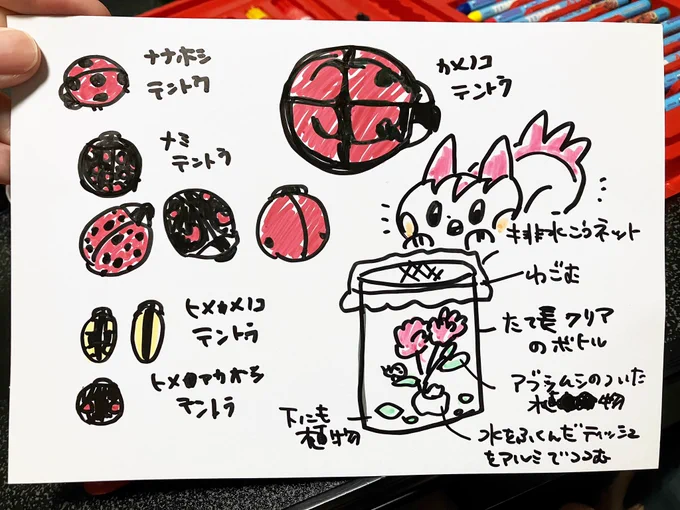 ナナホシ
テントウ
カメノコ
テントウ
ナミ
テントウ
ヒメカメノコ
テントウ
ヒメアカホシ
テントウ
排水こうネット
わごむ
たて長クリア
のボトル
アブラムシのついた
植物
下にも
植物
水をふくんだティッシュ
をアルミでつつむ